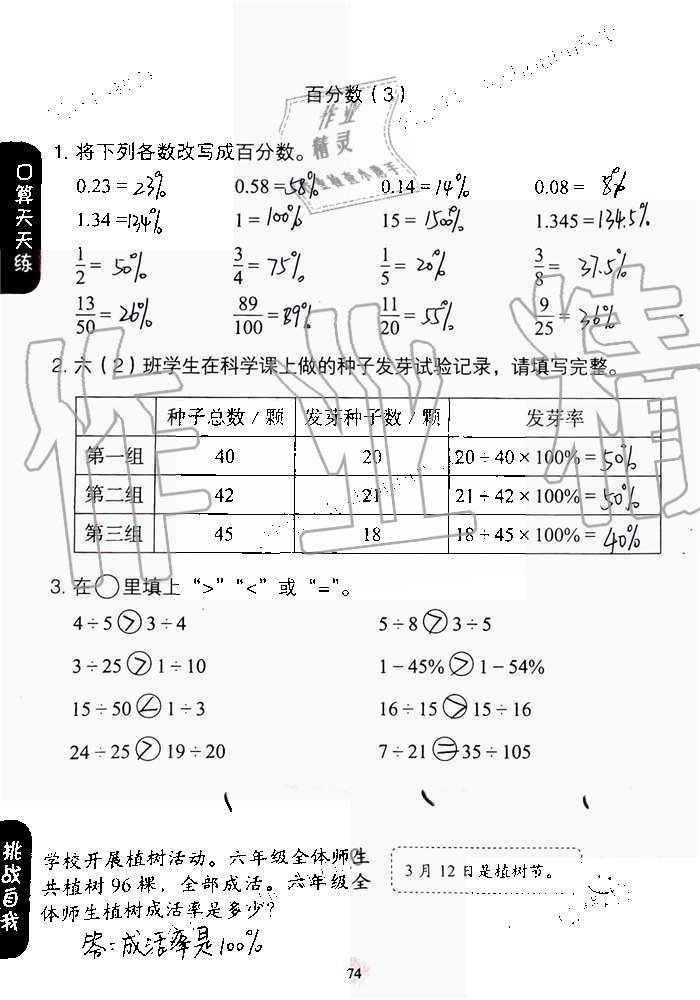 百分数（3）
1. 将下列各数改写成百分数。
0.23 = 23% 0.58 = 58% 0.14 = 14% 0.08 = 8%
1.34 = 134% 1 = 100% 15 = 1500% 1.345 = 134.5%
1/2 = 50% 3/4 = 75% 1/5 = 20% 3/8 = 37.5%
13/50 = 26% 89/100 = 89% 11/20 = 55% 9/25 = 36%
2. 六（2）班学生在科学课上做的种子发芽试验记录，请填写完整。
种子总数/颗 发芽种子数/颗 发芽率
第一组 40 20 20÷40×100% = 50%
第二组 42 21 21÷42×100% = 50%
第三组 45 18 18÷45×100% = 40%
3. 在○里填上“>”“<”或“=”。
4÷5 > 3÷4 5÷8 > 3÷5
3÷25 > 1÷10 1-45% > 1-54%
15÷50 < 1÷3 16÷15 > 15÷16
24÷25 > 19÷20 7÷21 = 35÷105
学校开展植树活动。六年级全体师生
共植树96棵，全部成活。六年级全
体师生植树成活率是多少?
答:成活率是100%
3月12日是植树节。
口算天天练
挑战自我
74
作业
精灵
作业精